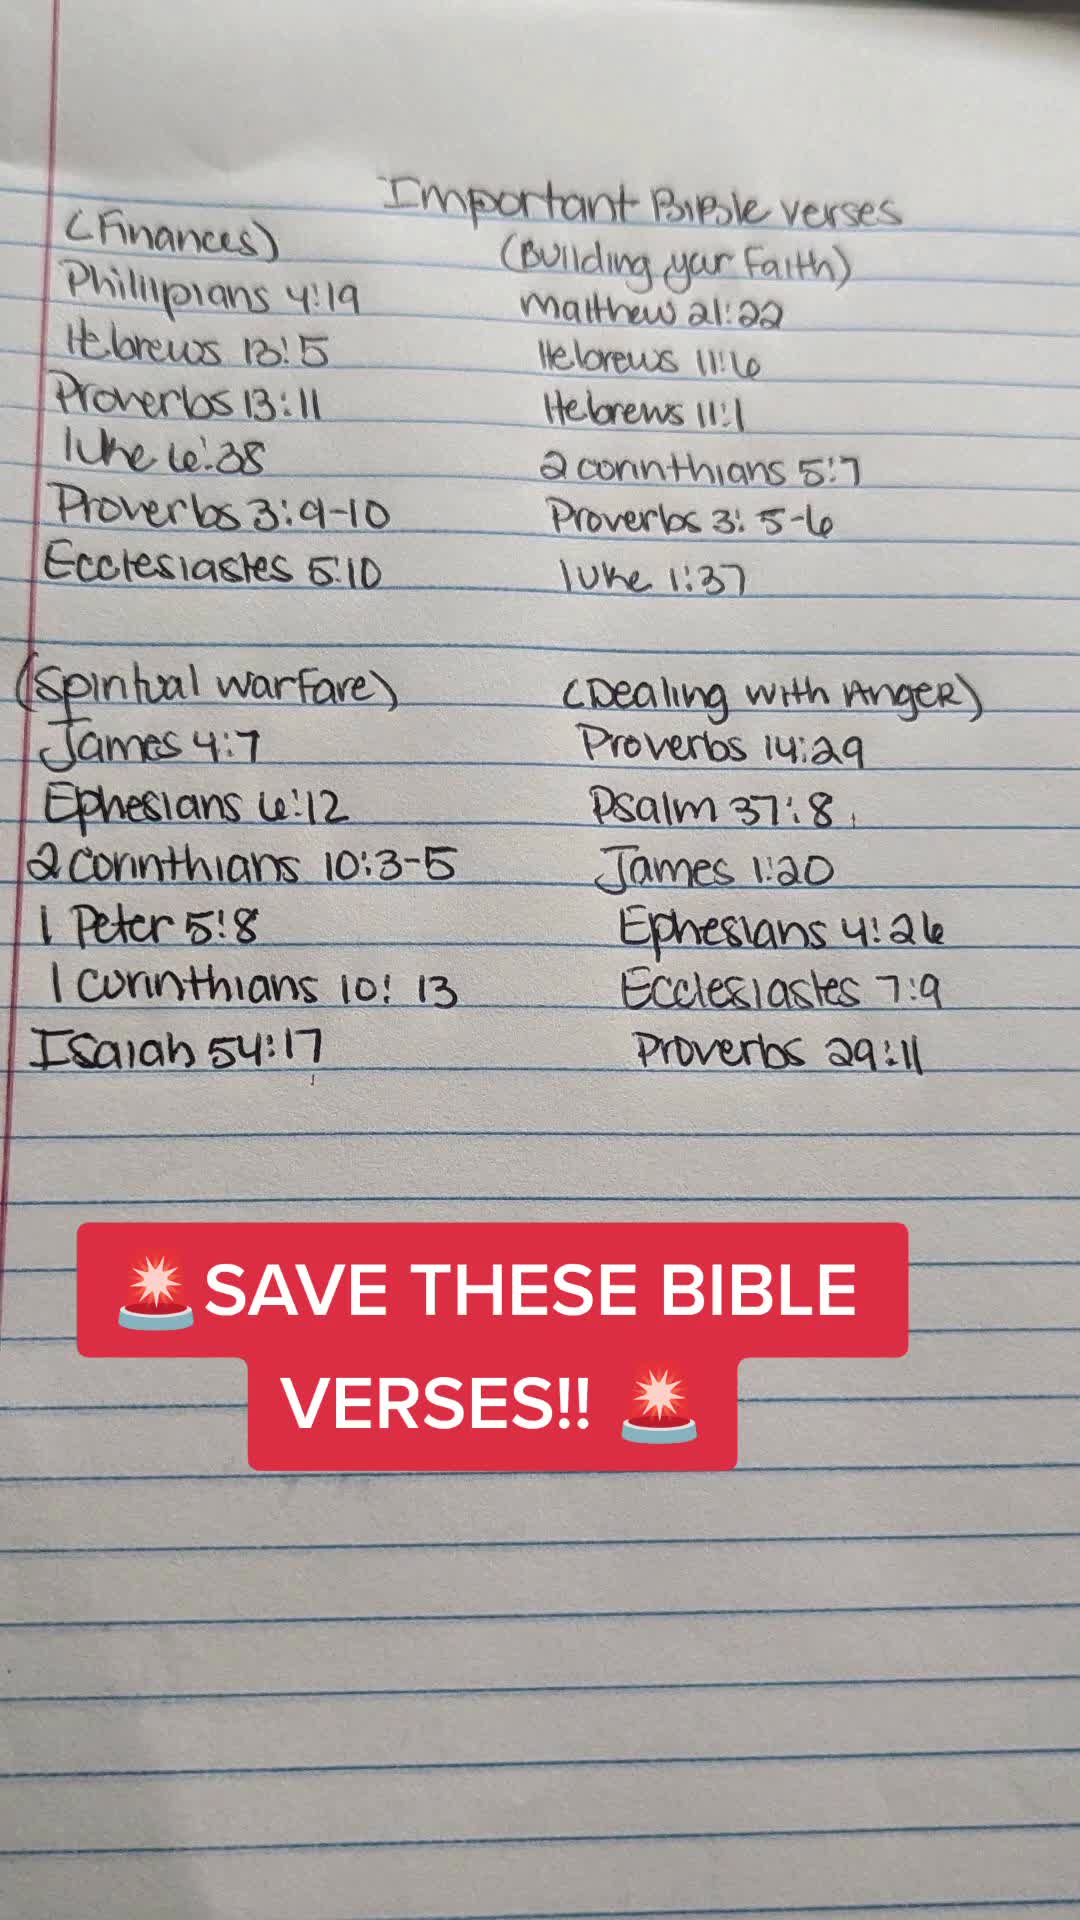 Important Bible verses
(Finances)
Phillipians 4:19
Hebrews 13:5
Proverbs 13:11
luke 6:38
Proverbs 3:9-10
Ecclesiastes 5:10
(Building your Faith)
Matthew 21:22
Hebrews 11:6
Hebrews 11:1
2 corinthians 5:7
Proverbs 3:5-6
luke 1:37
(Spiritual warfare)
James 4:7
Ephesians 6:12
2 corinthians 10:3-5
1 Peter 5:8
1 corinthians 10:13
Isaiah 54:17
(Dealing with Anger)
Proverbs 14:29
Psalm 37:8
James 1:20
Ephesians 4:26
Ecclesiastes 7:9
Proverbs 29:11
🚨SAVE THESE BIBLE
VERSES!! 🚨